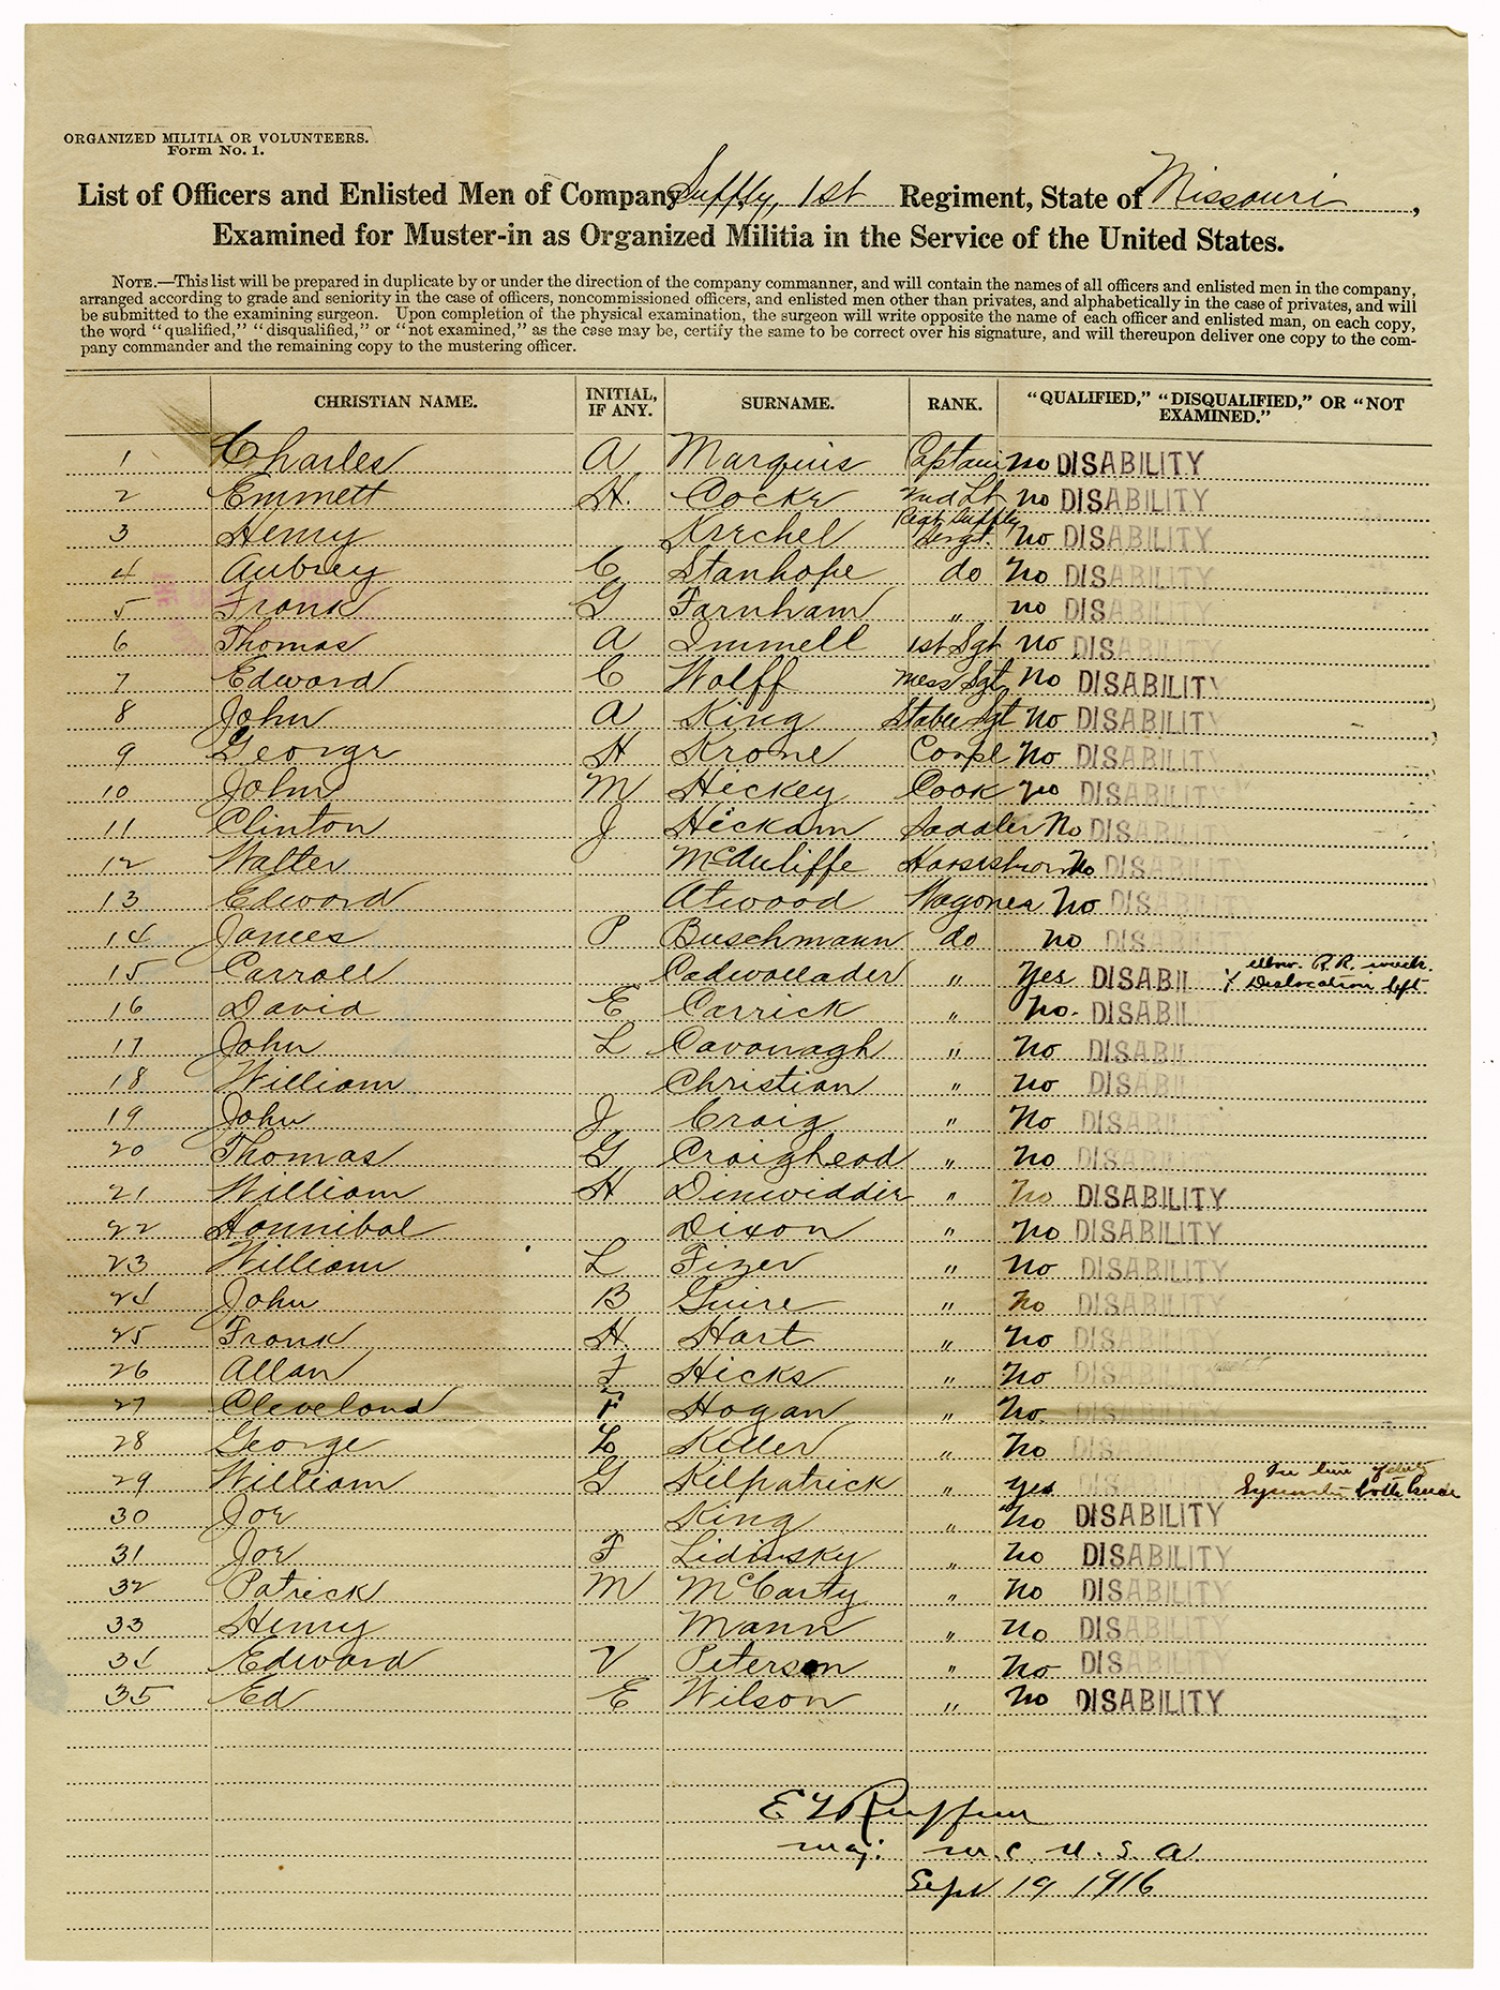 ORGANIZED MILITIA OR VOLUNTEERS.
Form No. 1.
List of Officers and Enlisted Men of Company Supply, 1st Regiment, State of Missouri,
Examined for Muster-in as Organized Militia in the Service of the United States.
NOTE.—This list will be prepared in duplicate by or under the direction of the company commanner, and will contain the names of all officers and enlisted men in the company,
arranged according to grade and seniority in the case of officers, noncommissioned officers, and enlisted men other than privates, and alphabetically in the case of privates, and will
be submitted to the examining surgeon. Upon completion of the physical examination, the surgeon will write opposite the name of each officer and enlisted man, on each copy,
the word "qualified," "disqualified," or "not examined," as the case may be, certify the same to be correct over his signature, and will thereupon deliver one copy to the com-
pany commander and the remaining copy to the mustering officer.
CHRISTIAN NAME. INITIAL, IF ANY. SURNAME. RANK. "QUALIFIED," "DISQUALIFIED," OR "NOT EXAMINED."
1 Charles A Marquis Captain no DISABILITY
2 Emmett H. Cocke 2nd Lt no DISABILITY
3 Henry Krechel Regt Supply Sergt. No DISABILITY
4 Aubrey C Stanhope do No DISABILITY
5 Frank G Farnham " no DISABILITY
6 Thomas A Immell 1st Sgt no DISABILITY
7 Edward C Wolff Mess Sgt No DISABILITY
8 John A King Stable Sgt No DISABILITY
9 George H Krone Corpl No DISABILITY
10 John M Hickey Cook no DISABILITY
11 Clinton J Hickam Saddler No DISABILITY
12 Walter McAuliffe Horseshoer No DISABILITY
13 Edward Atwood Wagoner No DISABILITY
14 James P Buschmann do no DISABILITY
15 Carroll Cadwallader " Yes DISABIL elbow. R.R. wreck. Dislocation left
16 David E Carrick " No. DISABIL
17 John L Cavanagh " No DISABIL
18 William Christian " No DISABIL
19 John J Craig " No DISABILITY
20 Thomas G Craighead " No DISABILITY
21 William H Dinwiddie " No DISABILITY
22 Hannibal Dixon " No DISABILITY
23 William L Fizer " No DISABILITY
24 John B Guire " No DISABILITY
25 Frank H. Hart " No DISABILITY
26 Allan F Hicks " No DISABILITY
27 Cleveland F Hogan " No. DISABILITY
28 George L Keller " No DISABILITY
29 William G Kilpatrick " yes DISABILITY In line of duty both
30 Joe King " No DISABILITY
31 Joe F Lidinsky " No DISABILITY
32 Patrick M McCarty " No DISABILITY
33 Henry Mann " No DISABILITY
34 Edward V Peterson " No DISABILITY
35 Ed E Wilson " No DISABILITY
E L Ruffner
Maj. M.C. U.S.A.
Sept 19 1916